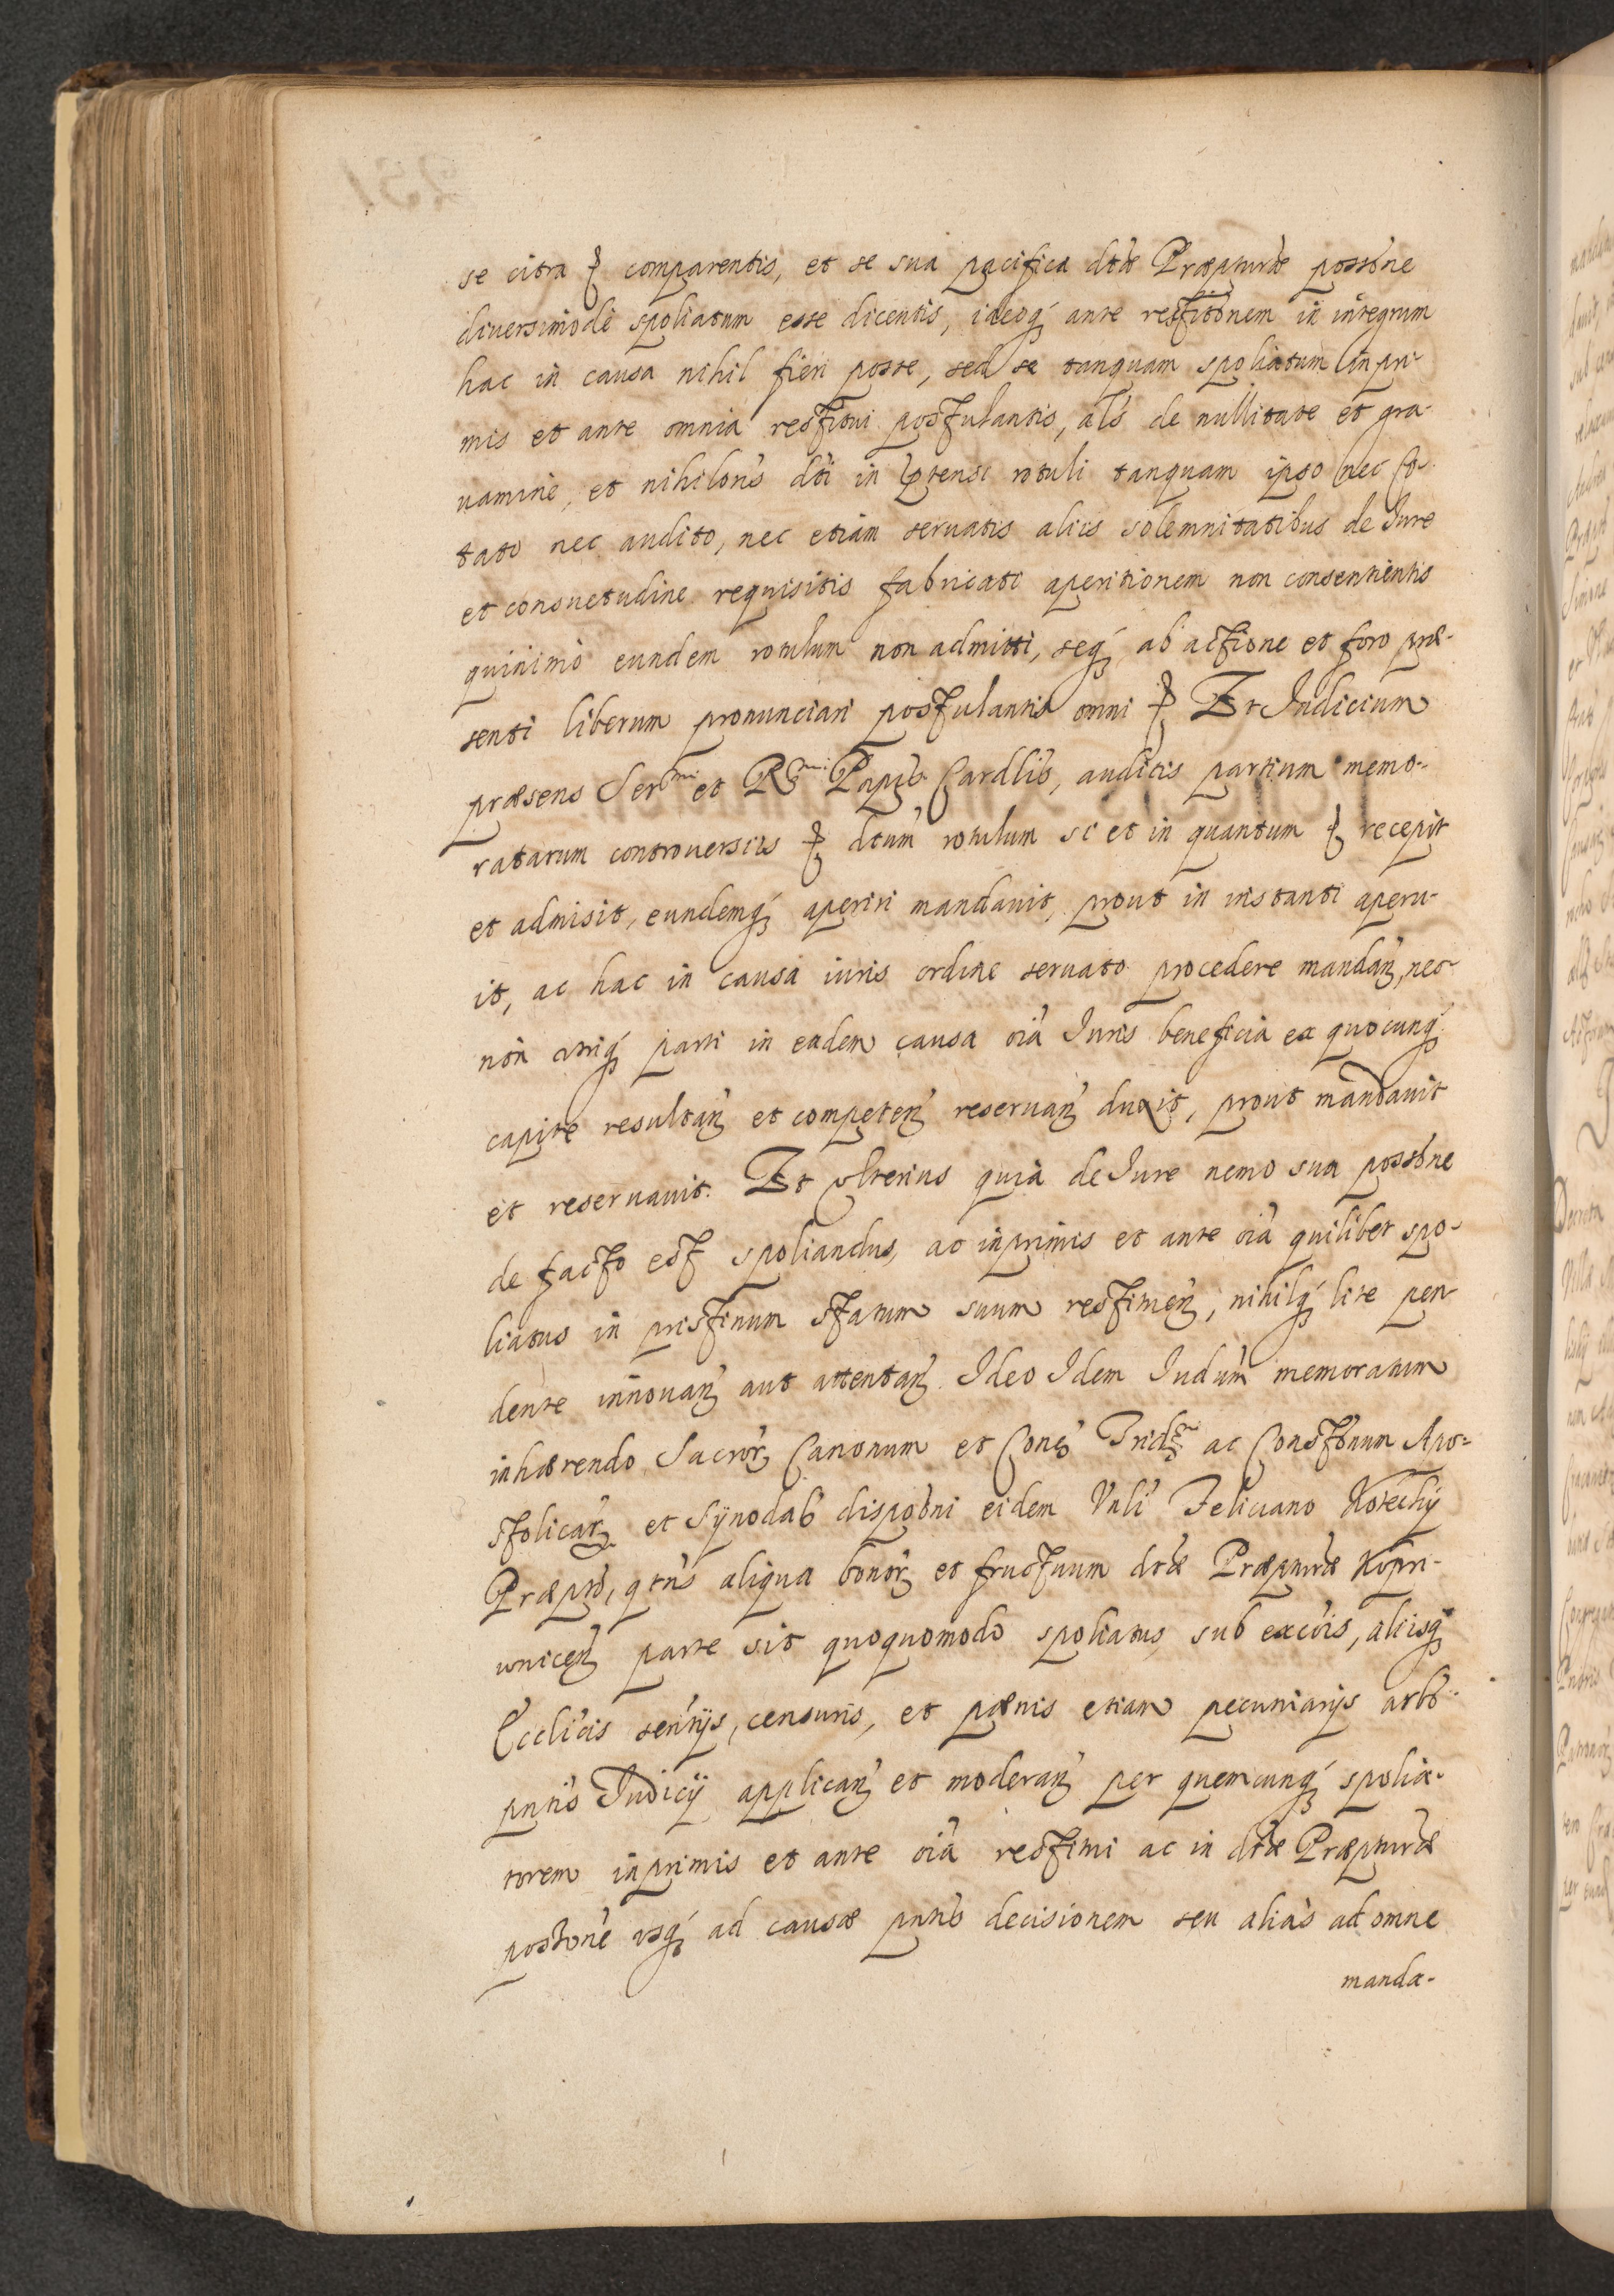 se citra etc comparentis, et se sua pacifica dtæ Præpturæ possone
diversimode spoliatum esse dicentis, ideoq́ ante restitonem in integrum
hac in causa nihil fieri posse, sed se tanquam spoliatum inpri-
mis et ante omnia restitui postulantis, als de nullitate et gra-
uamine, et nihilons dti in prtensi rotuli tanquam ipso nec Ci-
tato nec audito, nec etiam seruatis aliis solemnitatibus de Iure
et consuetudine requisitis fabricati aperitionem non consentientis
quinimo eundem rotulum non admitti, seq́ ab actione et foro præ-
senti liberum pronunciari postulantis omni etc Et Iudicium
præsens Sermi et Rmi Ppis Cardlis, auditis partium memo-
ratarum controuersiis etc dtum rotulum si et in quantum etc recepit
et admisit, eundemq́ aperiri mandauit, prout in instanti aperu-
it, ac hac in causa iuris ordine seruato procedere mandaṅ, nec-
non utriq́ parti in eadem causa oia Iuris beneficia ex quocunq́
capite resultaṅ et competeṅ reseruaṅ duxit, prout mandauit
et reseruauit. Et ulterius quia de Iure nemo sua possone
de facto est spoliandus, ac inprimis et ante oia quilibet spo-
liatus in pristinum statum suum restitueṅ, nihilq́ lite pen-
dente innouaṅ aut attentaṅ. Ideo Idem Iudum memoratum
inhærendo Sacror Canonum et Cons Tridni ac Constonum Apo-
stolicar et Synodals disponi eidem Vnli Feliciano Kotechÿ
Præpto, qtns aliqua bonor et fructuum dtæ Præpturæ Kopri-
unicen parte sit quoquomodo spoliatus, sub excois, aliisq́
Ecclicis sentÿs, censuris, et pænis etiam pecuniarÿs arbo
pntis Iudicÿ applicaṅ et moderaṅ per quemcunq́ spolia-
torem inprimis et ante oia restitui ac in dtæ Præpturæ
possone usq́ ad causæ pntis decisionem seu alias ad omne
manda-